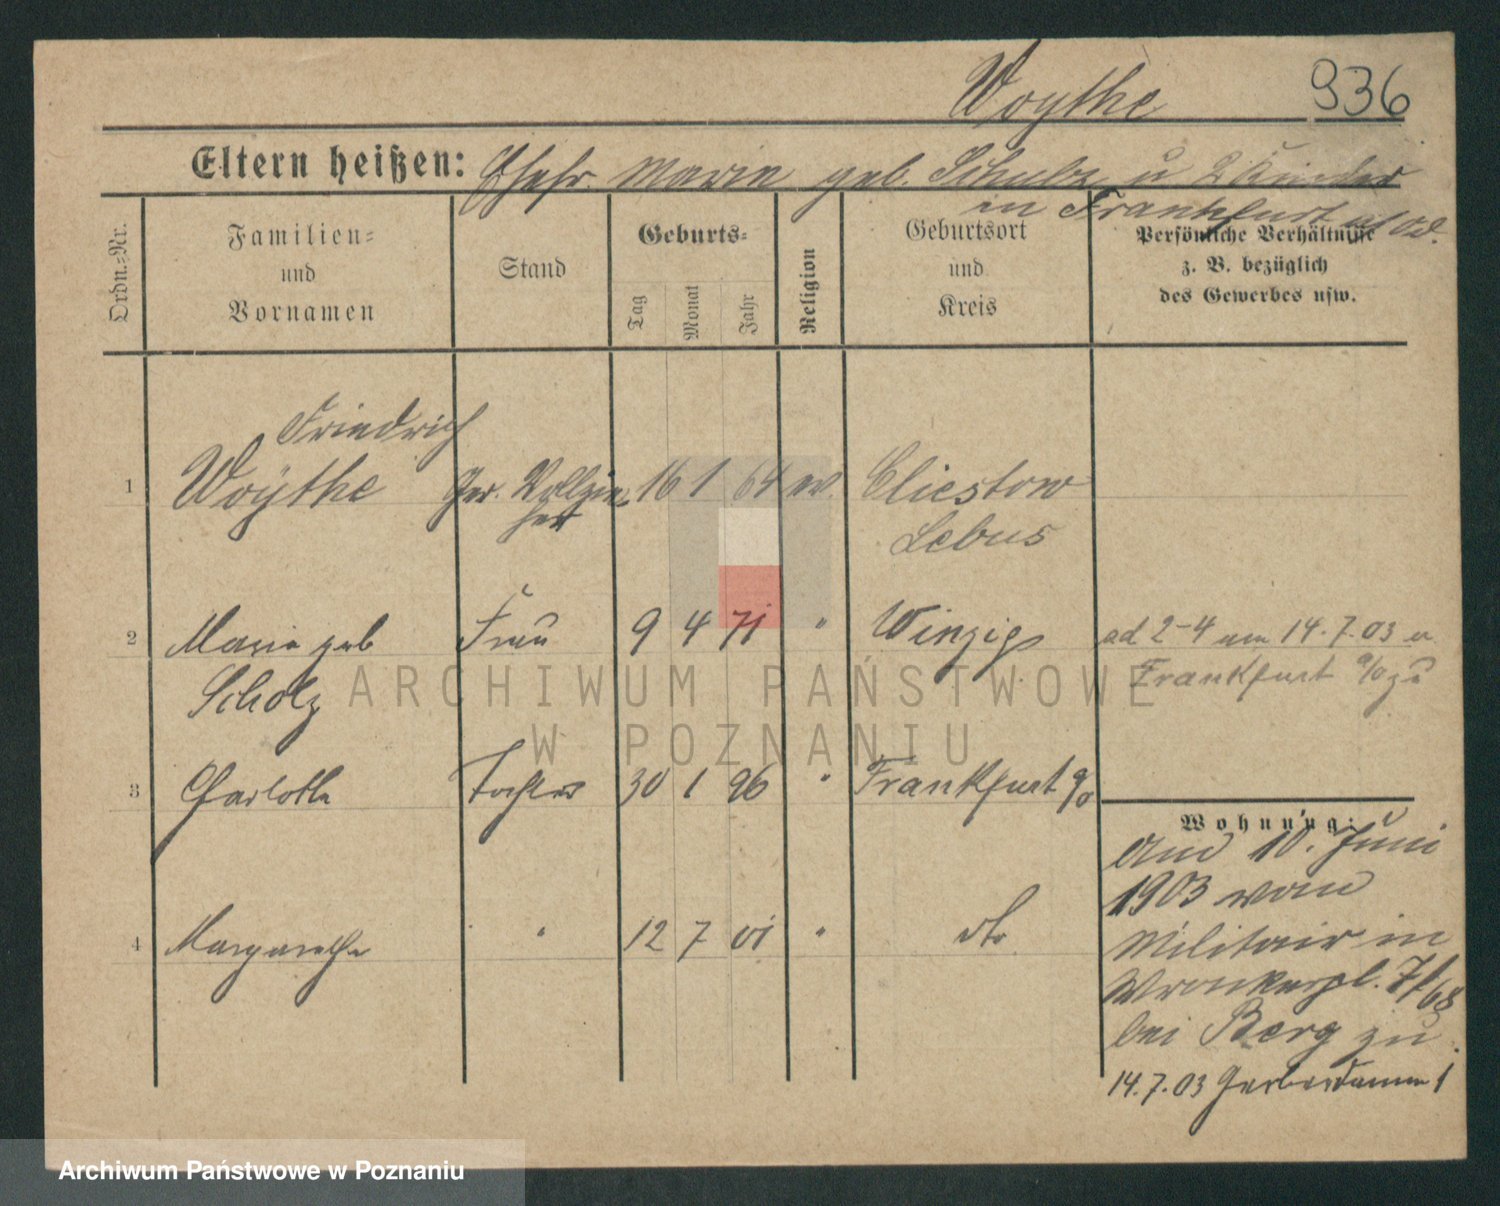 Woythe 936
Eltern heißen: Ehefr. Marie geb. Schulz u 2 Kinder
in Frankfurt a/Od.
Ordn.-Nr.
Familien-
und
Vornamen
Stand
Geburts-
Tag
Monat
Jahr
Religion
Geburtsort
und
Kreis
Persönliche Verhältnisse
z. B. bezüglich
des Gewerbes usw.
Friedrich
1 Woÿthe Ger. Vollzie- 16 1 64 ev. Cliestow
her Lebus
2 Marie geb Frau 9 4 71 " Winzig ad 2-4 am 14.7.03 v.
Scholz Frankfurt a/O zu
3 Charlotte Tochter 30 1 96 " Frankfurt a/O
4 Margarethe " 12 7 01 " dto
Wohnung:
Am 10. Juni
1903 vom
Militair in
Wronkerpl.
bei Berg zu
14.7.03 Gerberdamm 1
ARCHIWUM PAŃSTWOWE
W POZNANIU
Archiwum Państwowe w Poznaniu